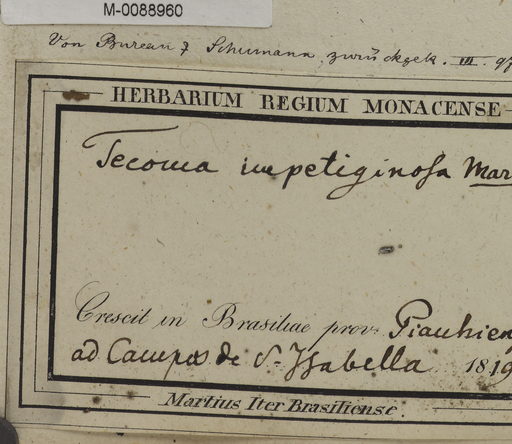 M-0088960
Von Bureau & Schumann zurückgek. III. 97
HERBARIUM REGIUM MONACENSE
Tecoma impetiginosa Mar
Crescit in Brasiliae prov. Piauhien
ad Campos de S. Ysabella 1819
Martius Iter Brasiliense.